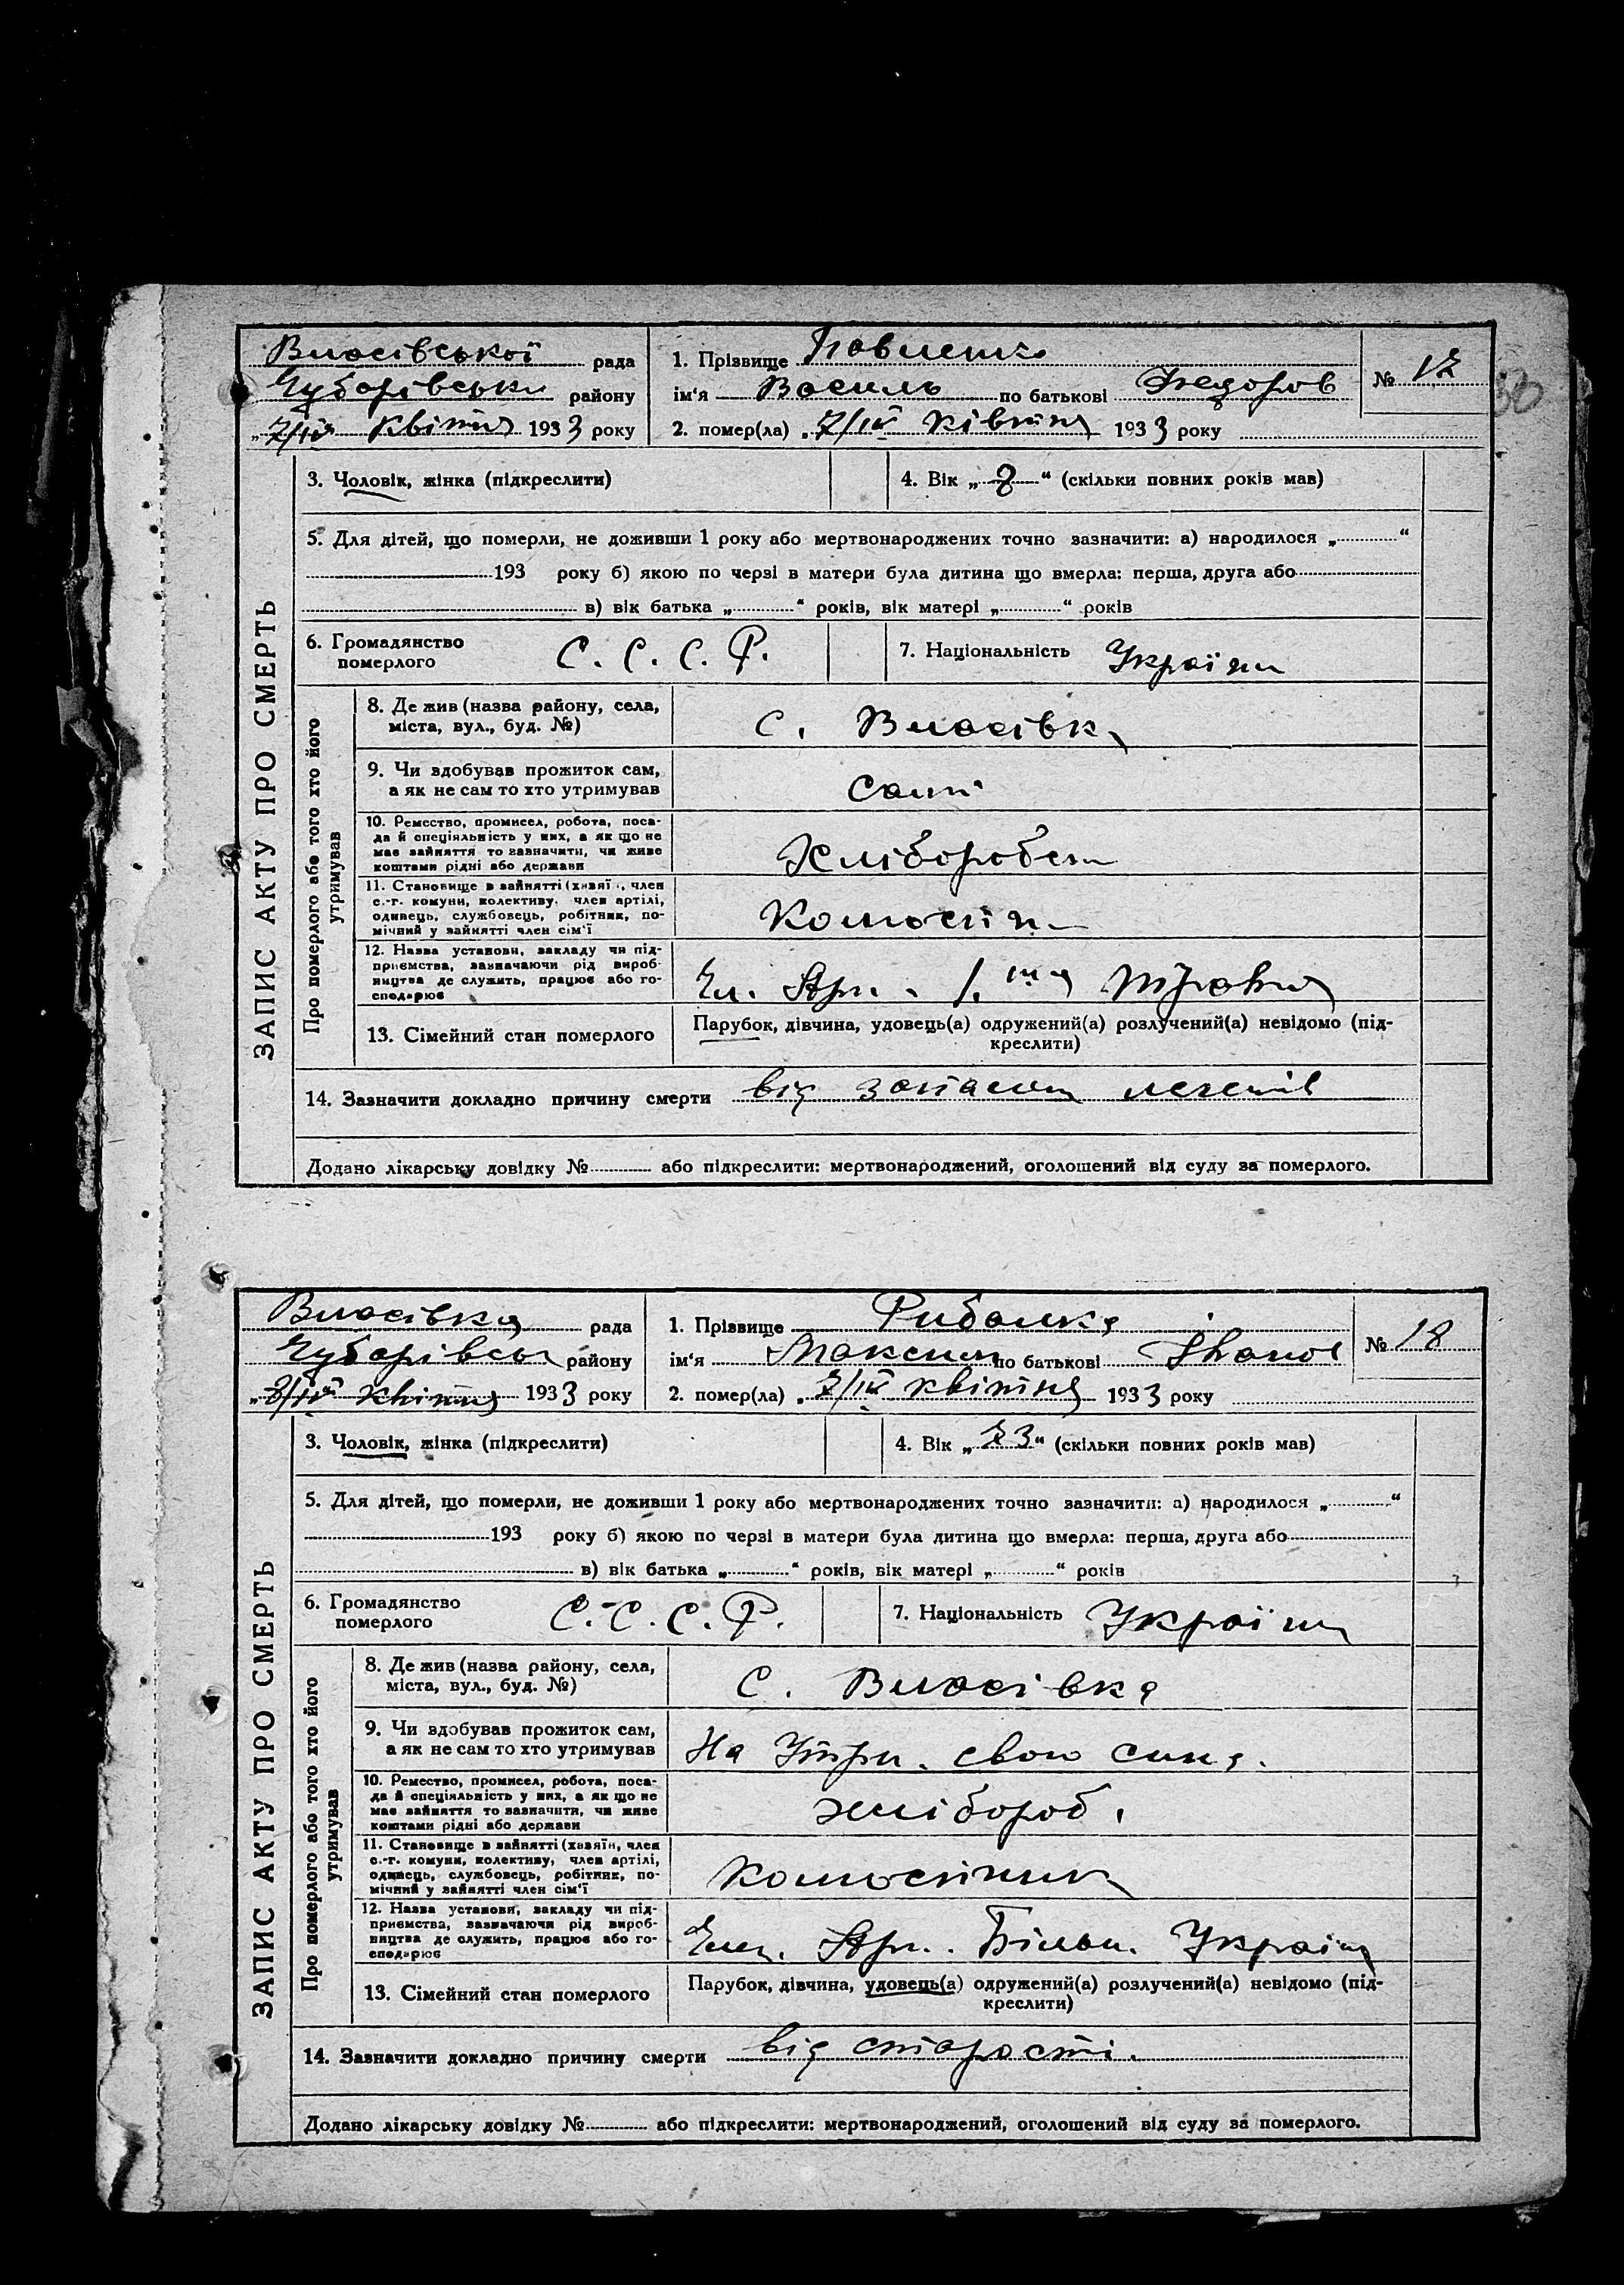 Власівської рада
Чубарівськ району
„7/IV квітня 1933 року
1. Прізвище Павленко
ім'я Василь по батькові Федоров
2. помер(ла) „7/IV квітня 1933 року
№ 17
ЗАПИС АКТУ ПРО СМЕРТЬ
3. Чоловік, жінка (підкреслити)
4. Вік „8“ (скільки повних років мав)
5. Для дітей, що померли, не доживши 1 року або мертвонароджених точно зазначити: а) народилося „ “
193 року б) якою по черзі в матери була дитина що вмерла: перша, друга або
в) вік батька „ “ років, вік матері „ “ років
6. Громадянство
померлого
С. С. С. Р.
7. Національність Україн
Про померлого або того хто його
утримував
8. Де жив (назва району, села,
міста, вул., буд. №)
с. Власівка
9. Чи здобував прожиток сам,
а як не сам то хто утримував
Сам
10. Ремество, промисел, робота, поса-
да й спеціяльність у них, а як що не
має зайняття то зазначити, чи живе
коштами рідні або держави
Хлібороб
11. Становище в зайнятті (хазяї , член
с.-г. комуни, колективу, член артілі,
одинець, службовець, робітник, по-
мічний у зайнятті член сім'ї
Колосп
12. Назва установи, закладу чи під-
приємства, зазначаючи рід вироб-
ництва де служить, працює або го-
сподарює
Арт. 1. Травня
13. Сімейний стан померлого
Парубок, дівчина, удовець(а) одружений(а) розлучений(а) невідомо (під-
креслити)
14. Зазначити докладно причину смерти від запален легенів
Додано лікарську довідку № або підкреслити: мертвонароджений, оголошений від суду за померлого.
Власівка рада
Чубарівськ району
„ /IV квітня 1933 року
1. Прізвище Рибалка
ім'я Максим по батькові Іванов
2. помер(ла) „7/IV квітня 1933 року
№ 18
ЗАПИС АКТУ ПРО СМЕРТЬ
3. Чоловік, жінка (підкреслити)
4. Вік „73“ (скільки повних років мав)
5. Для дітей, що померли, не доживши 1 року або мертвонароджених точно зазначити: а) народилося „ “
193 року б) якою по черзі в матери була дитина що вмерла: перша, друга або
в) вік батька „ “ років, вік матері „ “ років
6. Громадянство
померлого
С. С. С. Р.
7. Національність Україн
Про померлого або того хто його
утримував
8. Де жив (назва району, села,
міста, вул., буд. №)
с. Власівка
9. Чи здобував прожиток сам,
а як не сам то хто утримував
На Утрим. свою сина.
10. Ремество, промисел, робота, поса-
да й спеціяльність у них, а як що не
має зайняття то зазначити, чи живе
коштами рідні або держави
хлібороб.
11. Становище в зайнятті (хазяїн, член
с.-г. комуни, колективу, член артілі,
одинець, службовець, робітник, по-
мічний у зайнятті член сім'ї
Колоспник
12. Назва установи, закладу чи під-
приємства, зазначаючи рід вироб-
ництва де служить, працює або го-
сподарює
Арт. Більш. Україн
13. Сімейний стан померлого
Парубок, дівчина, удовець(а) одружений(а) розлучений(а) невідомо (під-
креслити)
14. Зазначити докладно причину смерти від старости.
Додано лікарську довідку № або підкреслити: мертвонароджений, оголошений від суду за померлого.